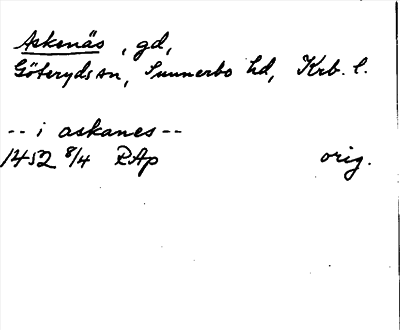 Askenäs, gd,
Göteryds sn, Sunnerbo hd, Krb. l.
-- i askanes --
1452 8/4 RAp orig.